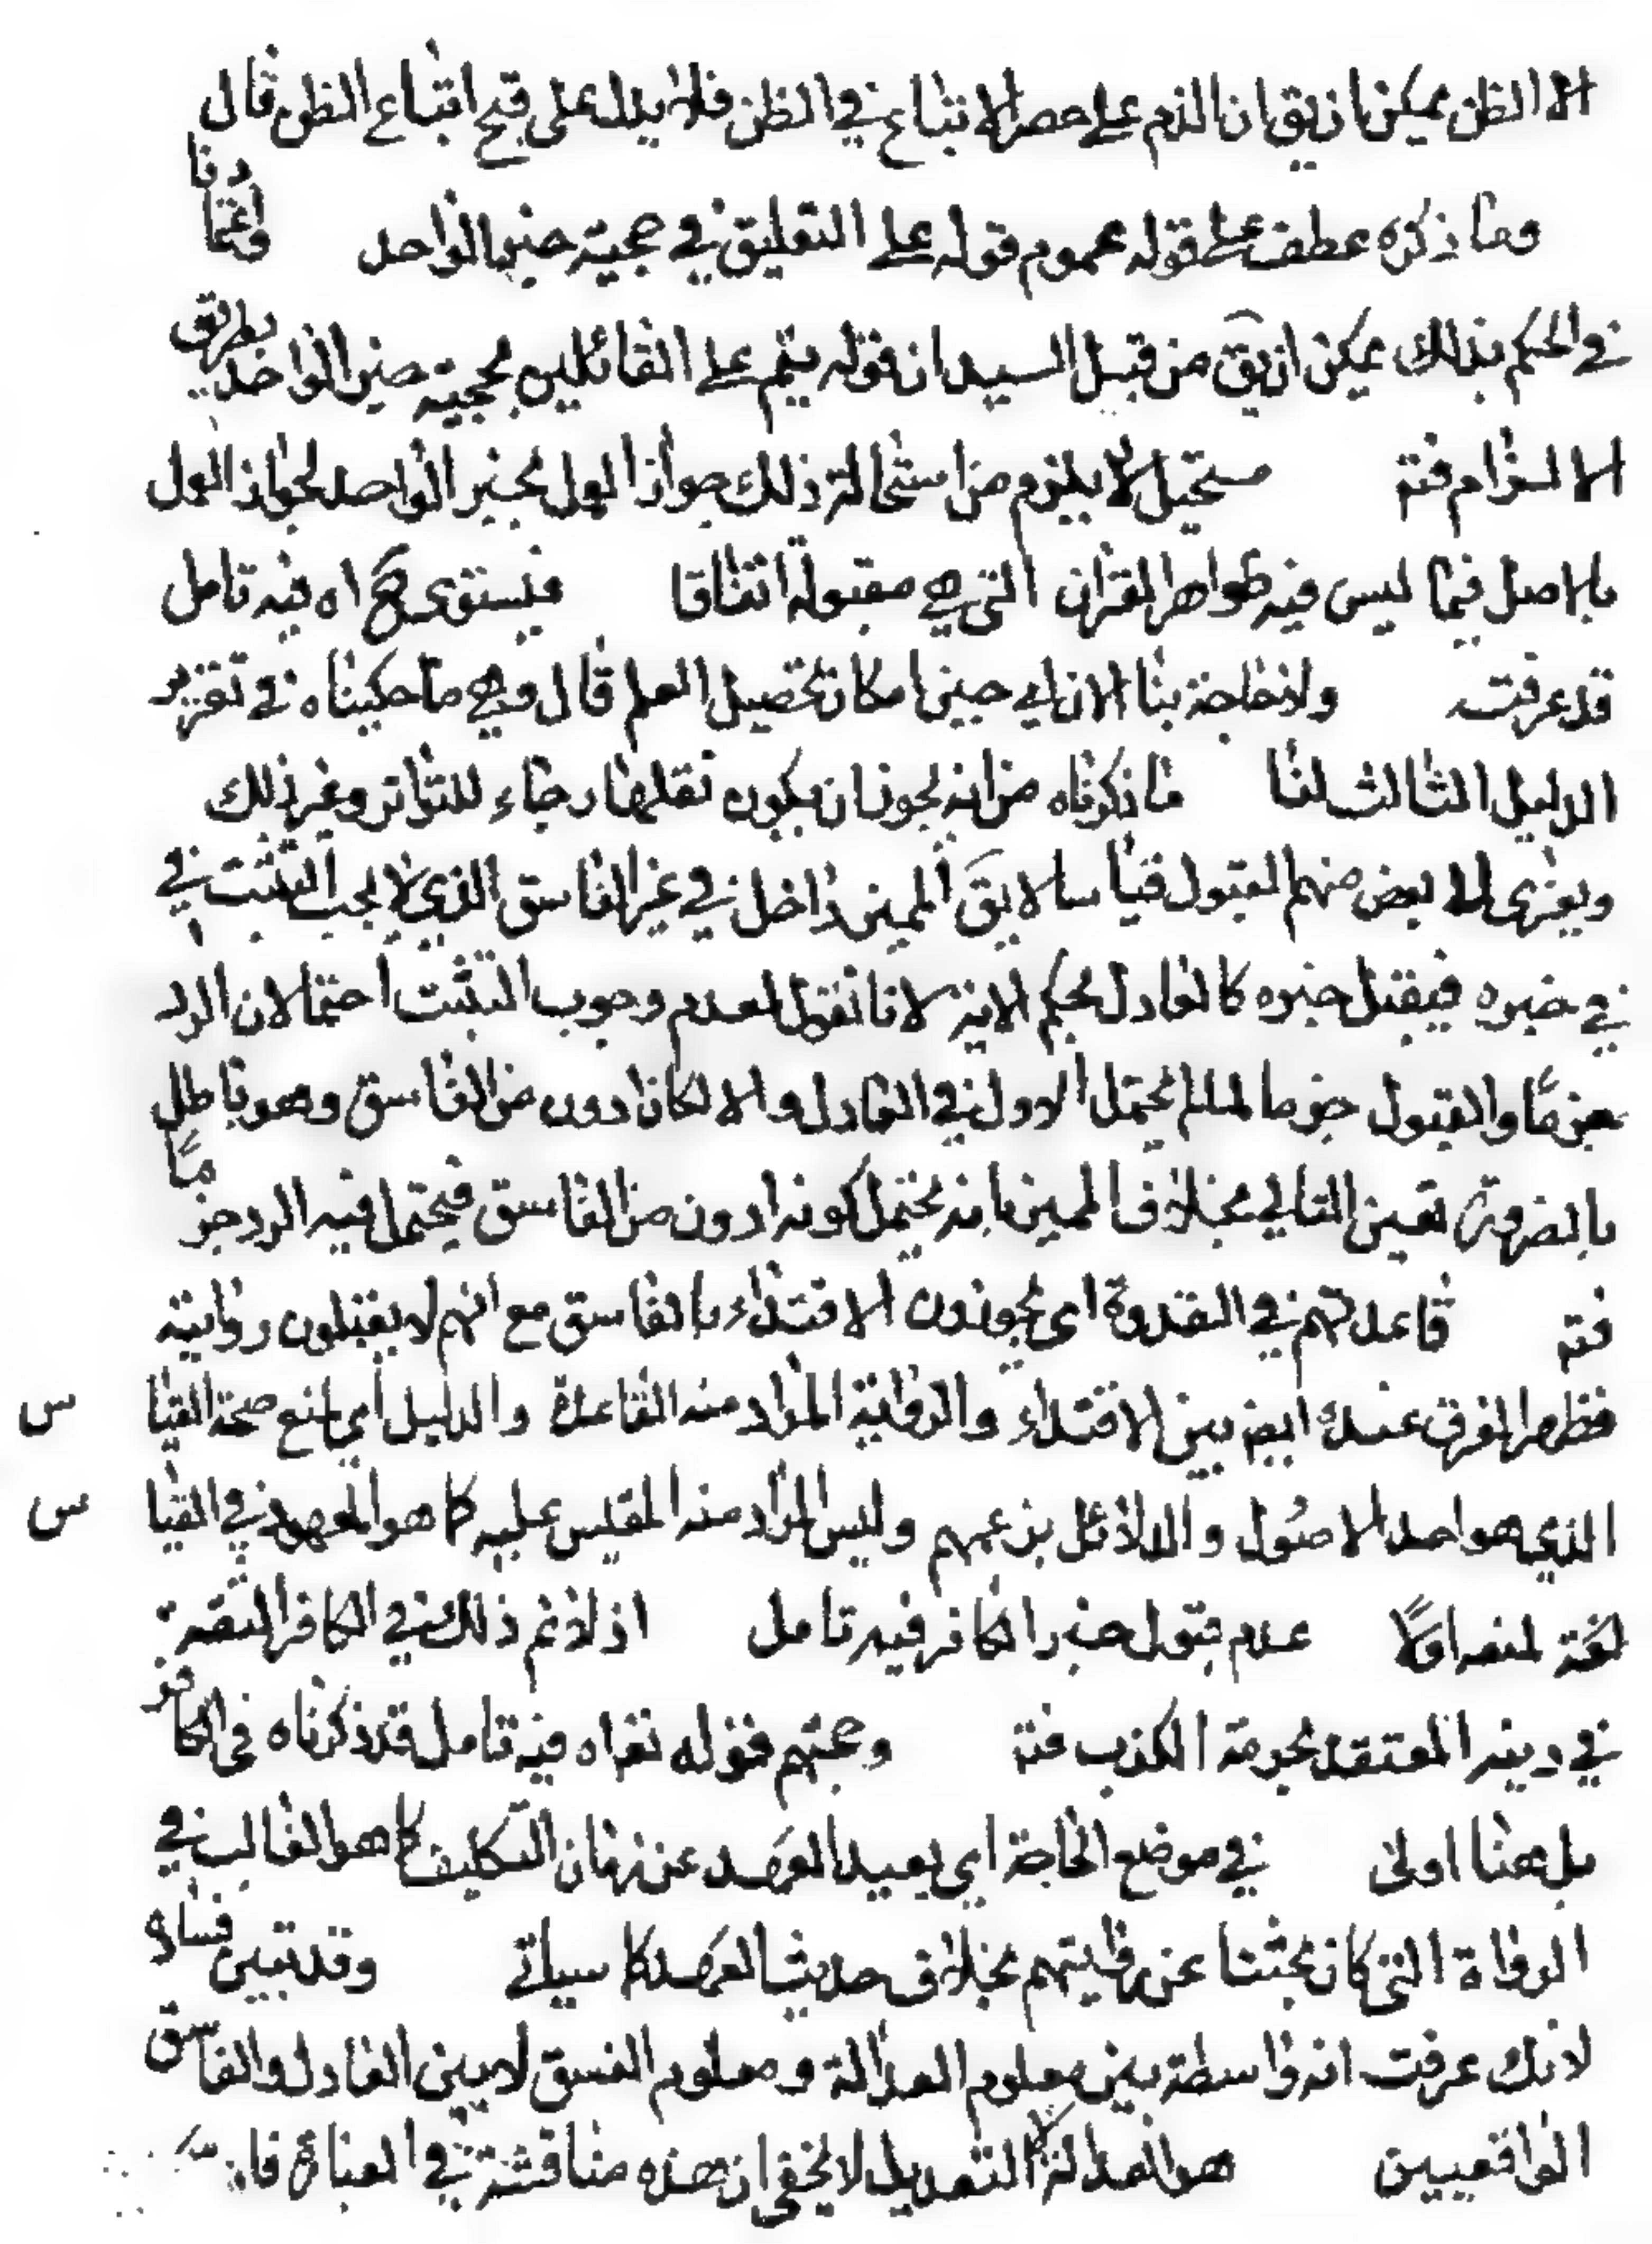 الا الظن يمكن ان يق ان الذم على حصر الاتباع في الظن فلا يدل على قبح اتباع الظن قال
وما ذكره عطف على قوله عموم قوله على التعليق في حجية خبر الواحد واعتمادنا
في الحكم بذلك يمكن ان يق من قبل السيد ان قوله يتم على القائلين بحجية خبر الواحد بطريق
الالزام فتد مستحيل لا يلزم من استحالة ذلك جواز العمل بخبر الواحد لجواز العمل
بالاصل فيما ليس فيه ظواهر القران التي هي مقبولة اتفاقا فيستوى ح اه فيه تامل
قد عرفت ولا حاجة بنا الان اي حين امكان تحصيل العلم قال وهي ما حكيناه في تقرير
الدليل الثالث لنا ما ذكرناه من انه يجوز ان يكون نقلها رجاء للتواتر وغير ذلك
ويعزى الى بعض منهم القبول قياسا لا يق المميز داخل في غير الفاسق الذي لا يجب التثبت في
في خبره فيقبل خبره كالعادل بحكم الاية لانا نقول لعدم وجوب التثبت احتمالان الرد
جزما والقبول جزما لما لم يحتمل الاول في العادل والا لكان ادون من الفاسق وهو باطل
بالضرورة تعين الثاني بخلاف المميز فانه يحتمل كونه ادون من الفاسق فيحتمل فيه الرد جزما
فتد قاعدتهم في القدوة اى يجوزون الاقتداء بالفاسق مع انهم لا يقبلون روايته
فظهر الفرق عندك ايضا بين الاقتداء والرواية المراد منه القاعدة والدليل اي مانع صحة القياس
الذي هو احد الاصول والدلائل بزعمهم وليس المراد منه المقيس عليه كما هو المعهود في القياس
لغة لمنعه اولا عدم قبول خبر الكافر فيه تامل اذ لا نم ذلك في الكافر الثقة
في دينه المعتقد بحرمة الكذب فتد وحجتهم قوله تعا اه فيه تامل قد ذكرناه فى الكافر
بل هنا اولى في موضع الحاجة اي بعيد العهد عن زمان التكليف كما هو الغالب في
الرواة التي كان بحثنا عن روايتهم بخلاف حديث العهد كما سياتي وقد تبين فساده
لانك عرفت انه واسطة بين معلوم العدالة ومعلوم الفسق لا بين العادل والفاسق
الواقعيين هو العدالة لا التعديل لا يخفى ان هذه مناقشة في العبارة فان